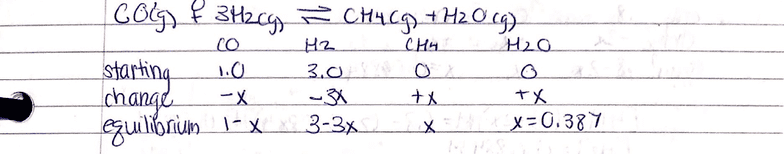 CO(g) & 3H2(g) ⇌ CH4(g) + H2O(g)
CO H2 CH4 H2O
starting 1.0 3.0 0 0
change -x -3x +x +x
equilibrium 1-x 3-3x x x=0.387